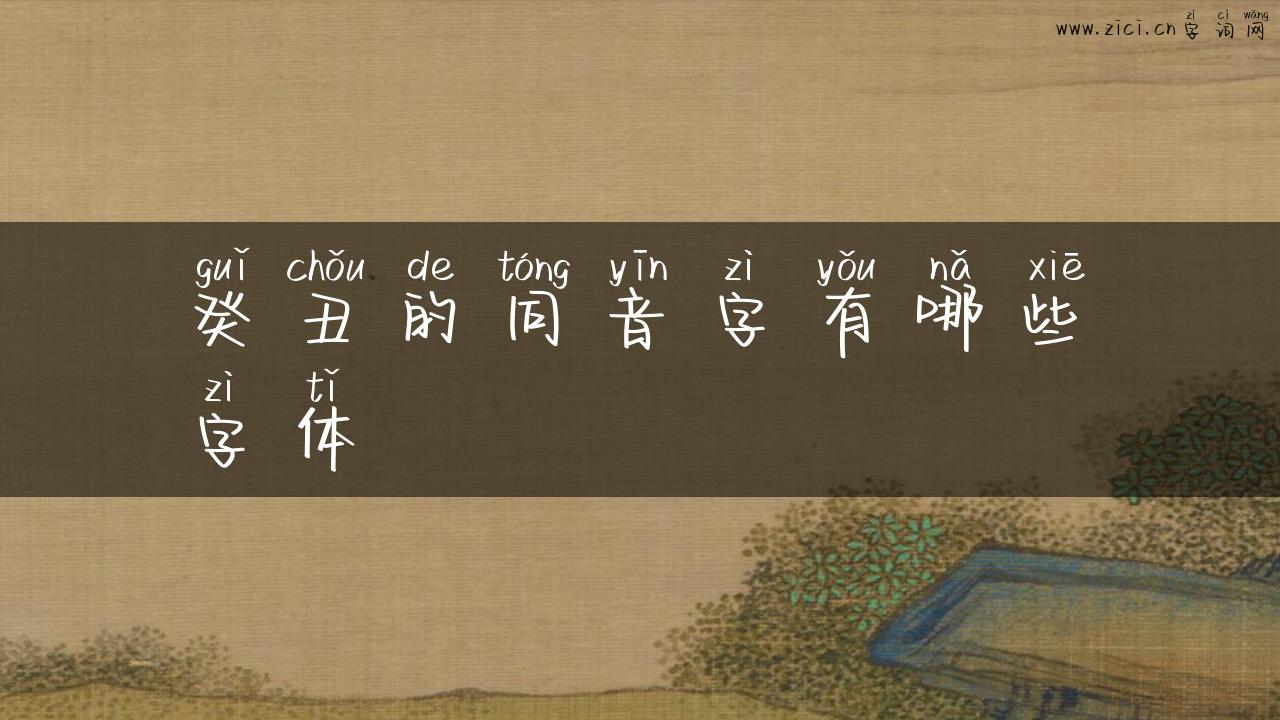 zì cí wǎng
www.zici.cn 字 词 网
guǐ chǒu de tóng yīn zì yǒu nǎ xiē
癸 丑 的 同 音 字 有 哪 些
zì tǐ
字 体